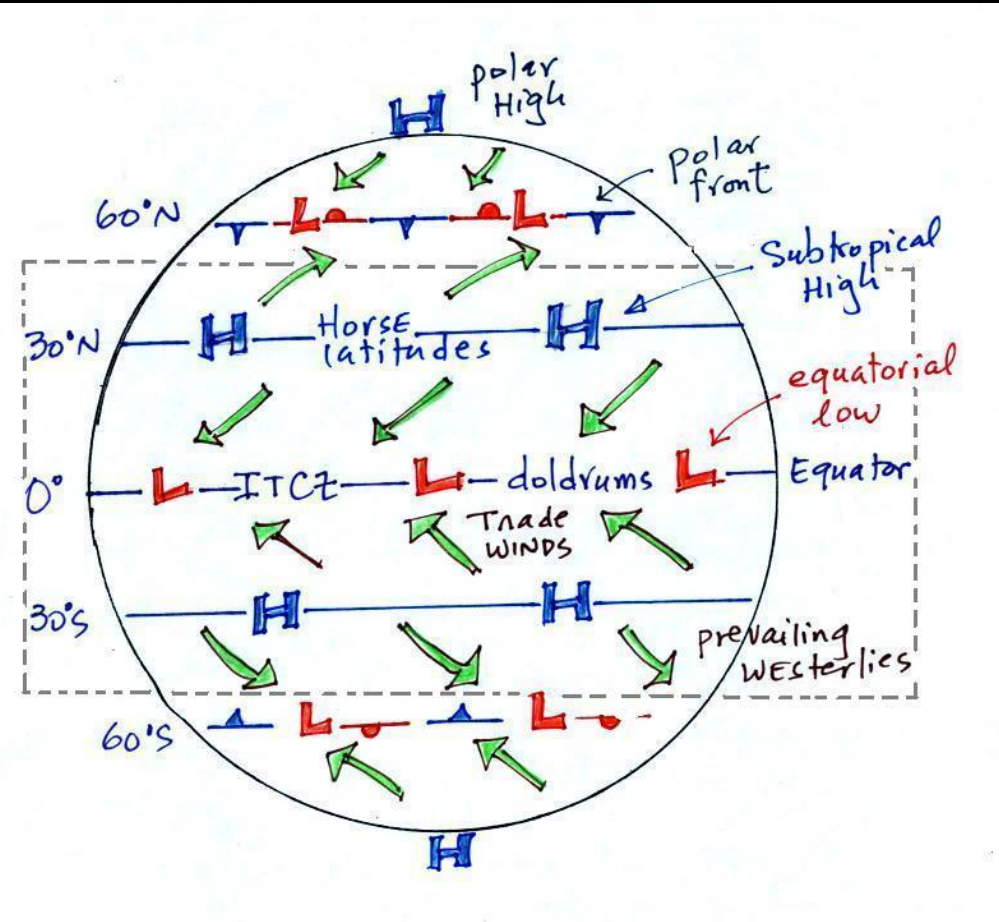 polar
High
H
60°N
L
L
polar
front
Subtropical
High
30°N
H
Horse
latitudes
H
equatorial
low
0°
L
ITCZ
L
doldrums
L
Equator
Trade
WINDS
30°S
H
H
prevailing
WESterlies
60°S
L
L
H